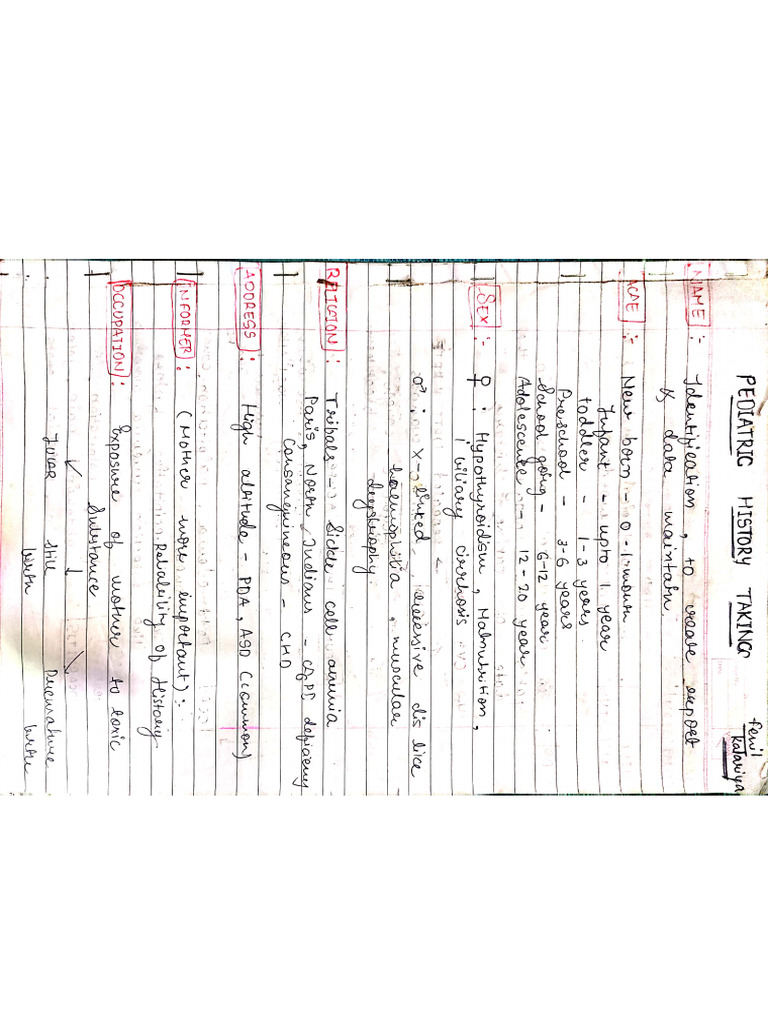 PEDIATRIC HISTORY TAKING
Fenil
Katariya
NAME :- Identification, to create rappot
& data maintain.
AGE :- New born - 0-1 month
Infant - upto 1 year
toddler - 1-3 years
Preschool - 3-6 years
School going - 6-12 year
Adolescente - 12-20 year
SEX :- ♀ : Hypothyroidism, Malnutrition,
biliary cirrhosis
♂ : X-linked recessive dis like
haemophilia, muscular
dystrophy
RELIGION : Tribals - Sickle cell anemia
Paris, North Indians - G6PD deficiency
Consanguineous - CHD
ADDRESS : High altitude - PDA, ASD (common)
INFORMER : (Mother more important) :-
Reliability of History
OCCUPATION : Exposure of mother to toxic
Substance
IUGR Still Premature
birth birth